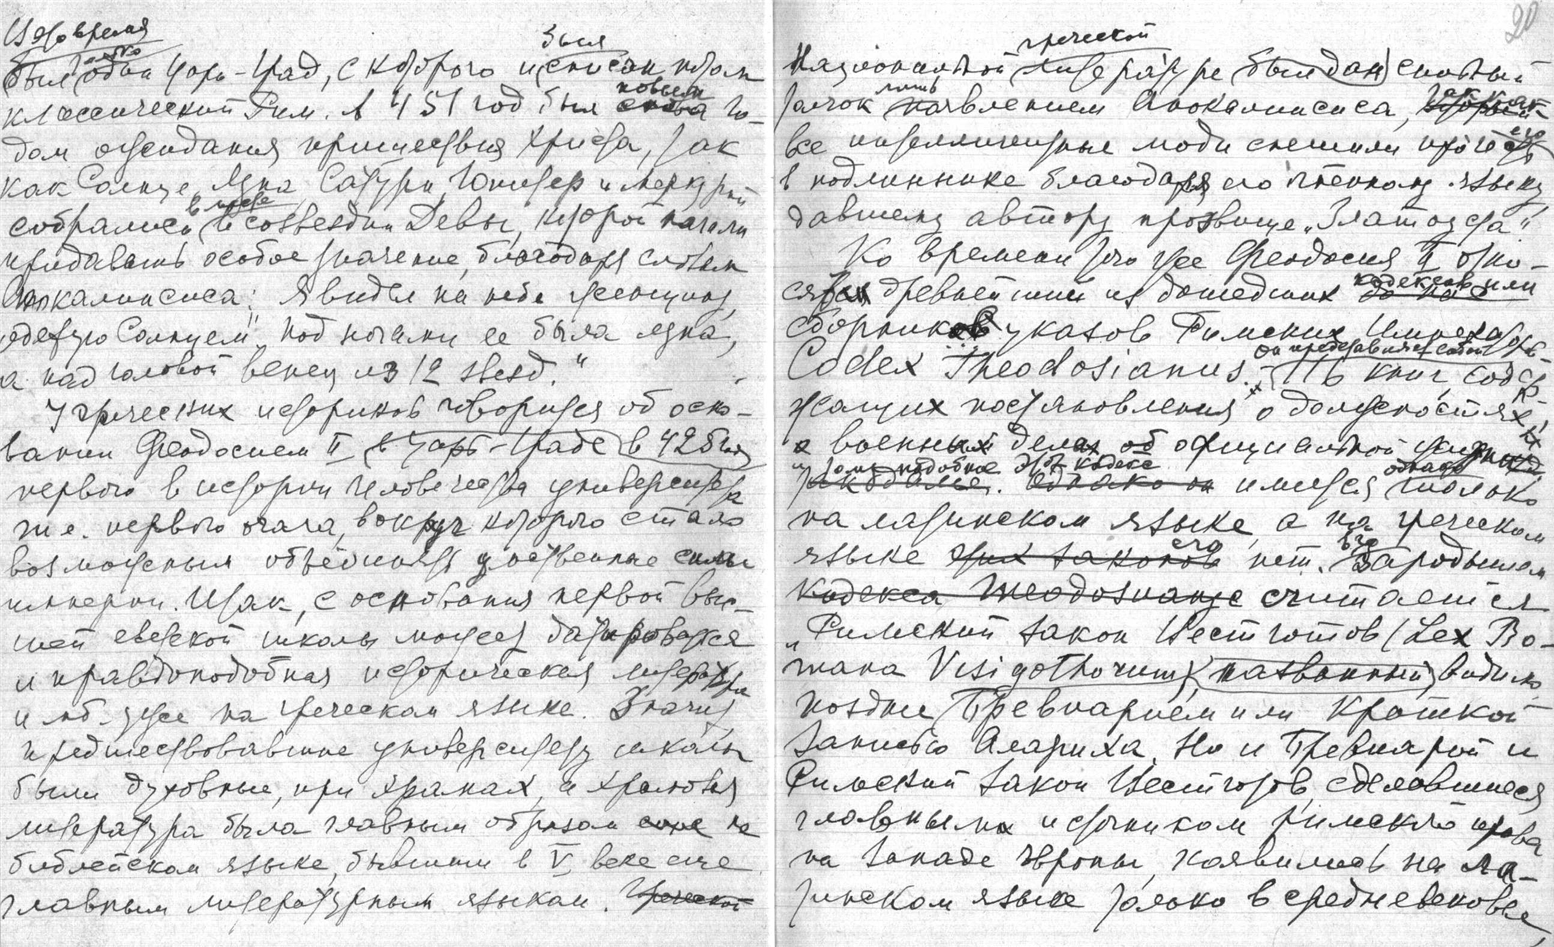 время
был один Царь-Град, с которого и списан потом
классический Рим. А 451 год был снова го-
дом ожидания пришествия Христа, так
как Солнце, Луна, Сатурн Юпитер и Меркурий
собрались в созвездии Девы, которой начали
придавать особое значение, благодаря словам
Апокалипсиса: "Я видел на небе женщину,
одетую Солнцем", под ногами ее была луна,
а над головой венец из 12 звезд."
У греческих историков говорится об осно-
вании Феодосием II в Царь-Граде в 425 году
первого в истории человечества университета
т.е. первого очага, вокруг которого стало
возможным объединять умственные силы
империи. Итак, с основания первой выс-
шей светской школы может датироваться
и правдоподобная историческая литература
и уже на греческом языке. Значит,
предшествовавшие университету школы
были духовные, при храмах, и храмовая
литература была главным образом на
библейском языке, бывшим в V веке еще
главным литературным языком. Греческой
20
греческой
Национальной литературе был дан сильный
толчок появлением Апокалипсиса, так как
все интеллигентные люди спешили прочесть его
в подлиннике благодаря его языку
давшему автору прозвище "Златоуста"
Ко времени того же Феодосия II отно-
сятся древнейший из дошедших кодексов или
сборников указов Римских Императоров
Codex Theodosianus. Он представляет собой
16 книг, содер-
жащих постановления о должностях,
о военных делах об официальной
тому подобное. Этот кодекс имеется однако только
на латинском языке, а на греческом
языке этих законов его нет. Его Зародышем
кодекса Theodosianus считается
"Римский закон Вестготов (Lex Ro-
mana Visigothorum), названный видимо
позднее Бревиарием или Краткой
записью Алариха. Но и Бревиарий и
Римский закон Вестготов, сделавшиеся
главными источником римского права
на Западе Европы, появились на ла-
тинском языке только в средневековье,